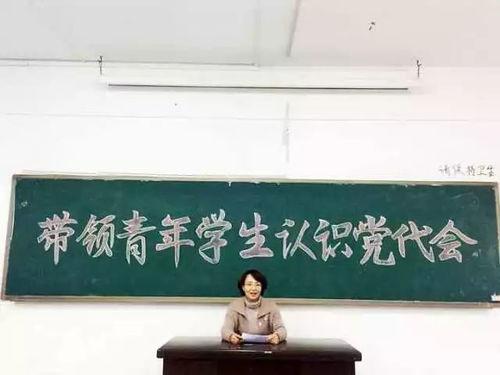 请保持卫生
带领青年学生认识党代会